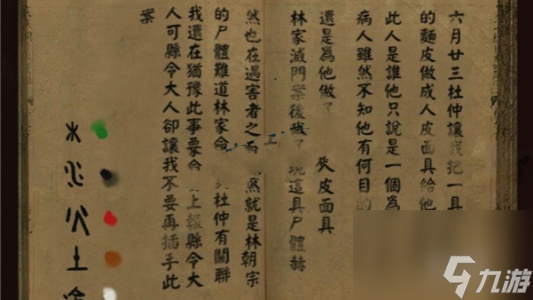 六月廿三杜仲讓我把一具
的麵皮做成人皮面具給他
此人是誰他只說是一個為
病人雖然不知他有何目
還是為他做了 皮面具
林家滅門案後 現這具尸體赫
然也在遇害者之 然就是林朝宗
的尸體難道林家 杜仲有關聯
我還在猶豫此事要 上報縣令大
人可縣令大人卻讓我不要再插手此
案
木
水
火
土
九游